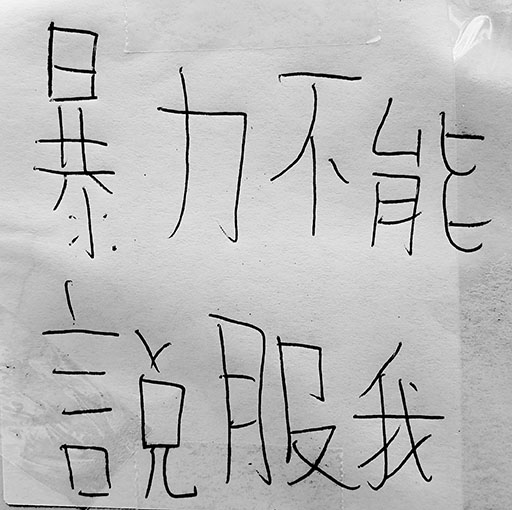 暴力不能
說服我